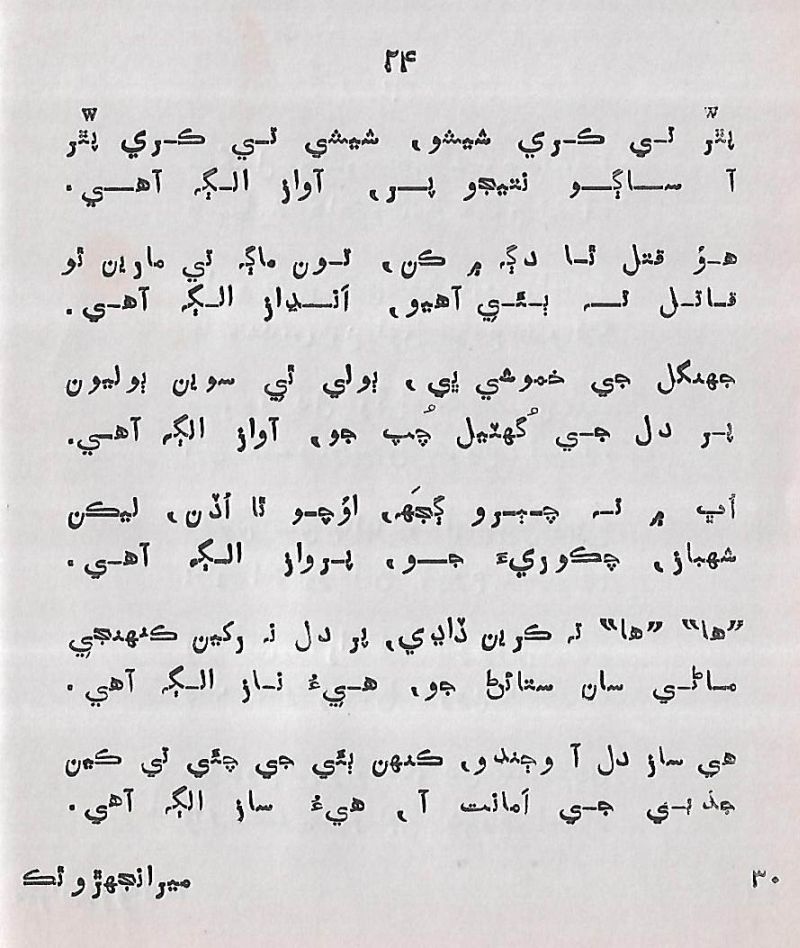 ۲۴
پٿر ٿي ڪري شيشو، شيشي ٿي ڪري پٿر
آ ساڳو نتيجو پر، آواز الڳ آهي.
هو قتل ٿا دڳہ ۾ ڪن، تون ماڳہ تي مارين ٿو
قاتل تہ ٻئي آهيو، اَنداز الڳہ آهي.
جهنگل جي خموشي ڀي، ٻولي ٿي سوين ٻوليون
پر دل جي گُهٽيل چُپ جو، آواز الڳہ آهي.
اُڀ ۾ تہ چٻرو ڳجَهہ، اوُچو ٿا اُڏن، ليڪن
شهباز، چڪوريءَ جو، پرواز الڳہ آهي.
”ها“ ”ها“ تہ ڪرين ڏاڍي، پر دل نہ رکين ڪنهنجي
ماٺي سان ستائڻ جو، هيءُ ناز الڳہ آهي.
هي ساز دل آ وڄندو، ڪنهن ٻئي جي چئي تي ڪين
جذبي جي اَمانت آ، هيءُ ساز الڳہ آهي.
۳۰
ميرانجهڙو ٿڪ